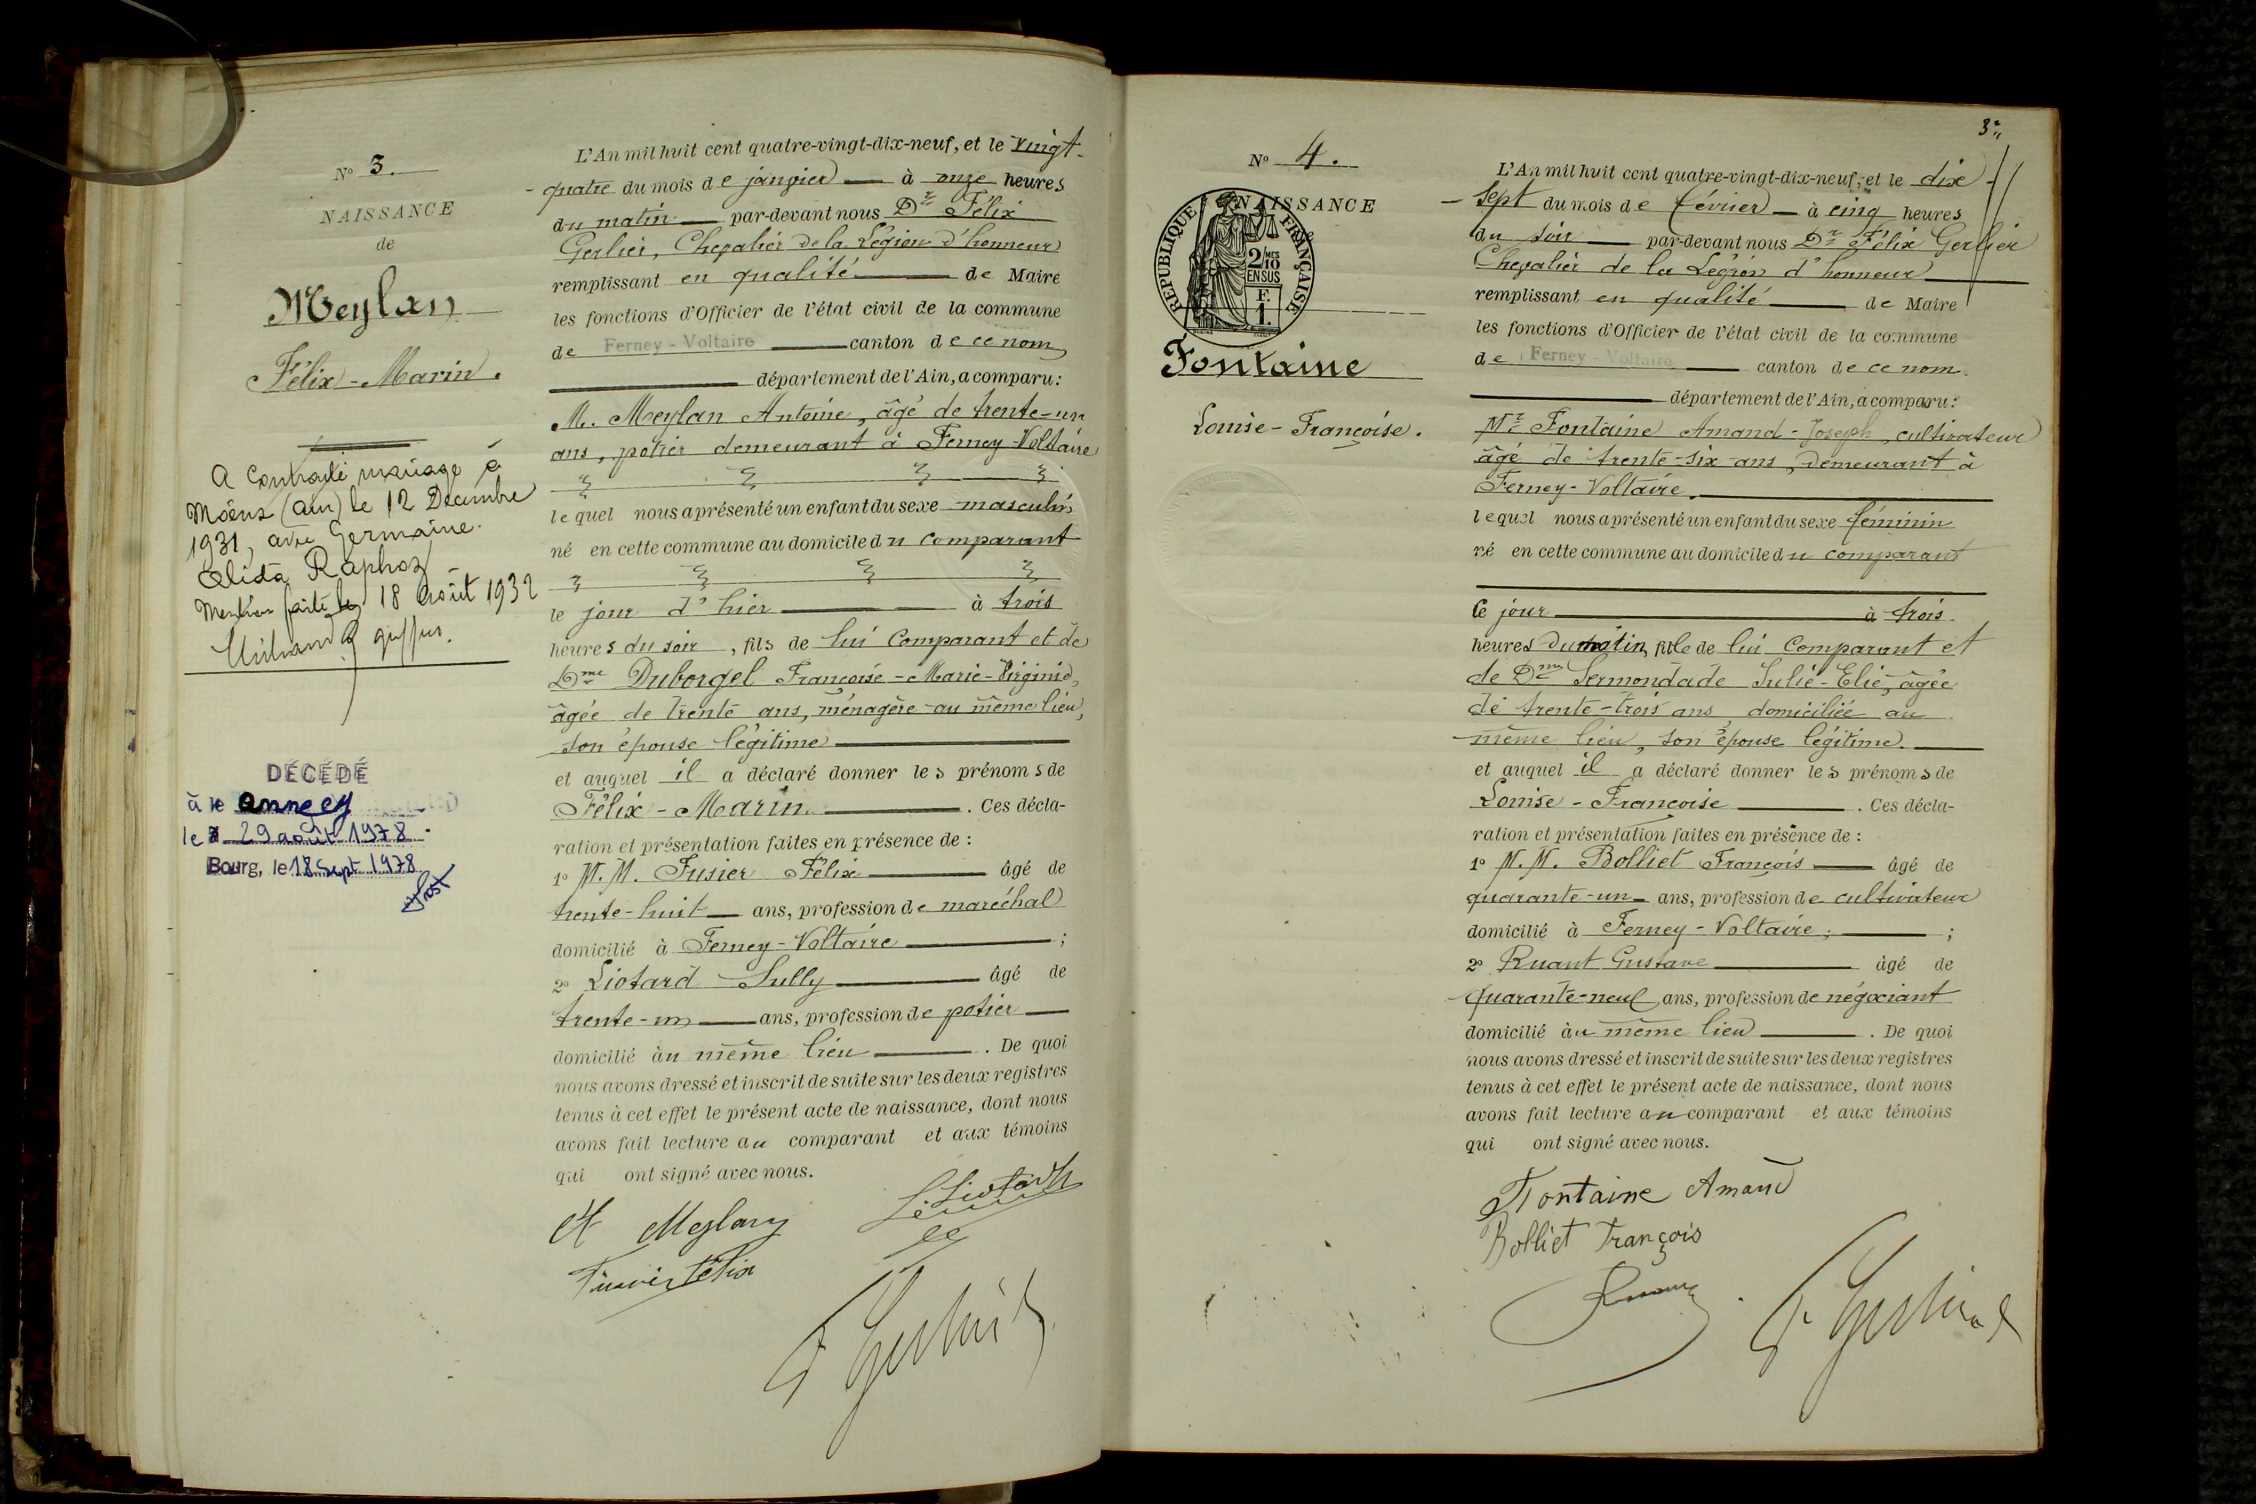 N° 3.
NAISSANCE
de
Meylan
Félix-Marin.
A contracté mariage à
Moëns (Ain) le 12 Décembre
1931, avec Germaine
Elida Raphoz
Mention faite le 18 Août 1932
DÉCÉDÉ
à Annecy
le 29 août 1978.
Bourg, le 18 Sept 1978
L'An mil huit cent quatre-vingt-dix-neuf, et le vingt-
quatre du mois de janvier à onze heures
du matin par-devant nous Dr Félix
Gerlier, Chevalier de la Légion d'honneur
remplissant en qualité de Maire
les fonctions d'Officier de l'état civil de la commune
de Ferney-Voltaire canton de ce nom
département de l'Ain, a comparu:
M. Meylan Antoine, âgé de trente-un
ans, potier demeurant à Ferney-Voltaire
lequel nous a présenté un enfant du sexe masculin
né en cette commune au domicile du comparant
le jour d'hier à trois
heures du soir, fils de lui Comparant et de
Dme Duborgel Françoise-Marie-Virginie,
âgée de trente ans, ménagère au même lieu,
son épouse légitime
et auquel il a déclaré donner les prénoms de
Félix-Marin. Ces décla-
ration et présentation faites en présence de:
1° M.M. Fusier Félix âgé de
trente-huit ans, profession de maréchal
domicilié à Ferney-Voltaire;
2° Liotard Sully âgé de
trente-un ans, profession de potier
domicilié au même lieu. De quoi
nous avons dressé et inscrit de suite sur les deux registres
tenus à cet effet le présent acte de naissance, dont nous
avons fait lecture au comparant et aux témoins
qui ont signé avec nous.
A Meylan
S. Liotard
Fusier Félix
F Gerlier
3
N° 4.
NAISSANCE
RÉPUBLIQUE FRANÇAISE
2/10 MES
EN SUS
F.
1.
Fontaine
Louise-Françoise.
L'An mil huit cent quatre-vingt-dix-neuf, et le dix-
sept du mois de février à cinq heures
du soir par-devant nous Dr Félix Gerlier
Chevalier de la Légion d'honneur
remplissant en qualité de Maire
les fonctions d'Officier de l'état civil de la commune
de Ferney-Voltaire canton de ce nom.
département de l'Ain, a comparu:
Mr Fontaine Amand-Joseph, cultivateur
âgé de trente-six ans, demeurant à
Ferney-Voltaire.
lequel nous a présenté un enfant du sexe féminin
né en cette commune au domicile du comparant
Ce jour à trois
heures du matin, fille de lui Comparant et
de Dme Sermondade Julie-Elie, âgée
de trente-trois ans, domiciliée au
même lieu, son épouse légitime.
et auquel il a déclaré donner les prénoms de
Louise-Françoise. Ces décla-
ration et présentation faites en présence de:
1° M.M. Bolliet François âgé de
quarante-un ans, profession de cultivateur
domicilié à Ferney-Voltaire;
2° Ruant Gustave âgé de
quarante-neuf ans, profession de négociant
domicilié au même lieu. De quoi
nous avons dressé et inscrit de suite sur les deux registres
tenus à cet effet le présent acte de naissance, dont nous
avons fait lecture au comparant et aux témoins
qui ont signé avec nous.
Fontaine Amand
Bolliet François
Ruant
F Gerlier